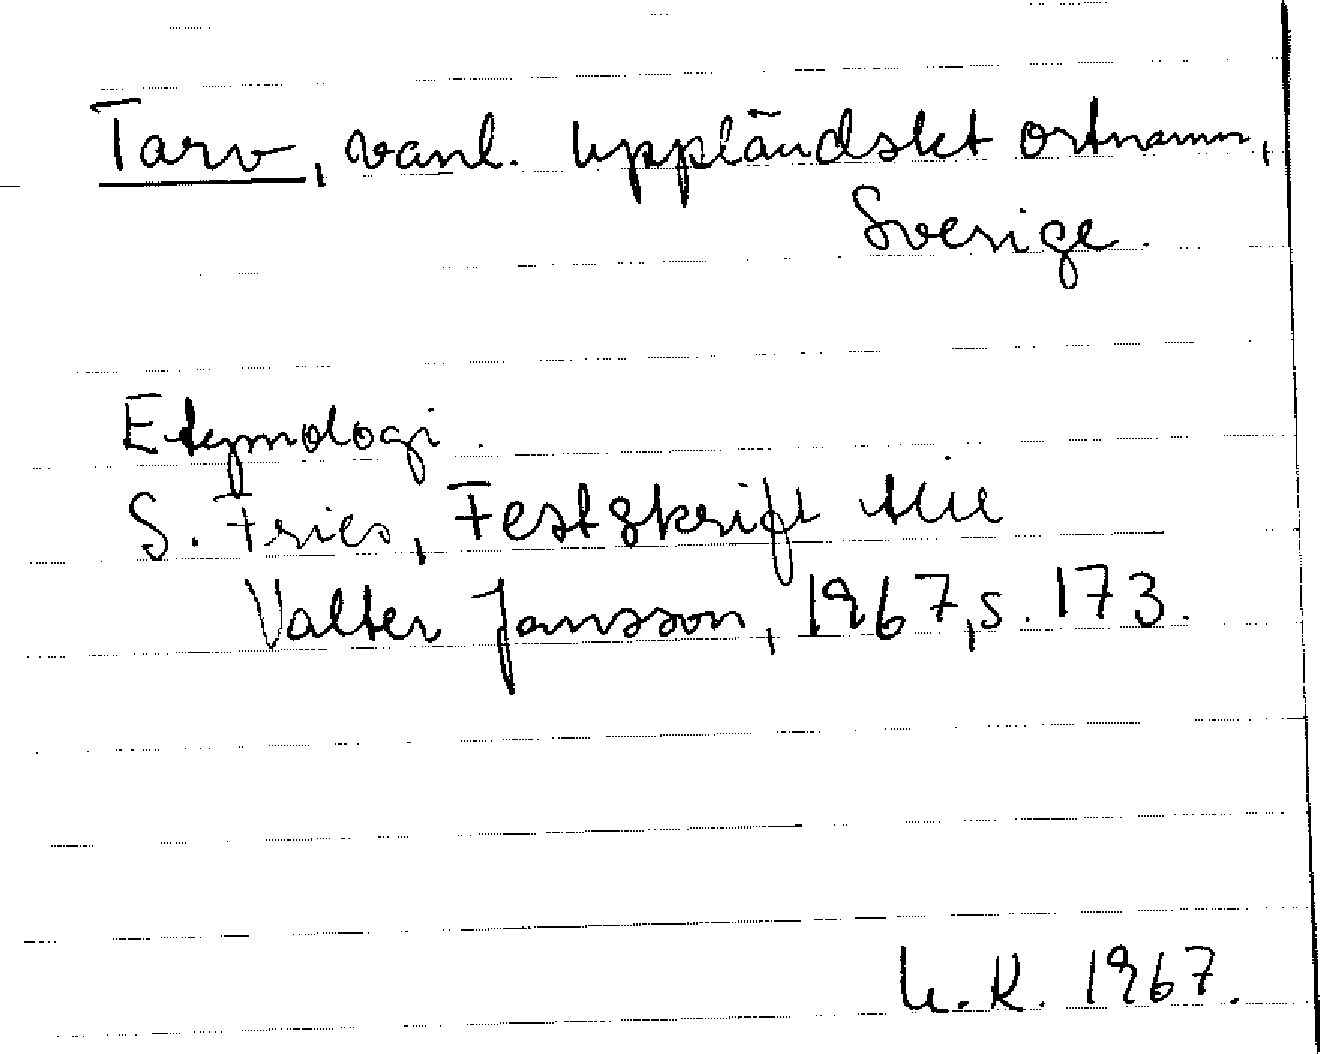 Tarv, vanl. uppländskt ortnamn,
Sverige.
Etymologi.
S. Fries, Festskrift till
Valter Jansson, 1967, s. 173.
K. 1967.